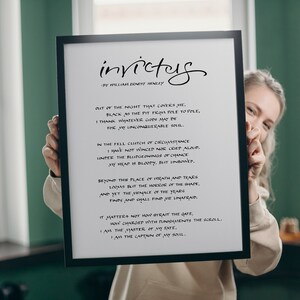 invictus
BY WILLIAM ERNEST HENLEY
OUT OF THE NIGHT THAT COVERS ME,
BLACK AS THE PIT FROM POLE TO POLE,
I THANK WHATEVER GODS MAY BE
FOR MY UNCONQUERABLE SOUL.
IN THE FELL CLUTCH OF CIRCUMSTANCE
I HAVE NOT WINCED NOR CRIED ALOUD,
UNDER THE BLUDGEONINGS OF CHANCE
MY HEAD IS BLOODY, BUT UNBOWED.
BEYOND THIS PLACE OF WRATH AND TEARS
LOOMS BUT THE HORROR OF THE SHADE,
AND YET THE MENACE OF THE YEARS
FINDS AND SHALL FIND ME UNAFRAID.
IT MATTERS NOT HOW STRAIT THE GATE,
HOW CHARGED WITH PUNISHMENTS THE SCROLL,
I AM THE MASTER OF MY FATE,
I AM THE CAPTAIN OF MY SOUL.